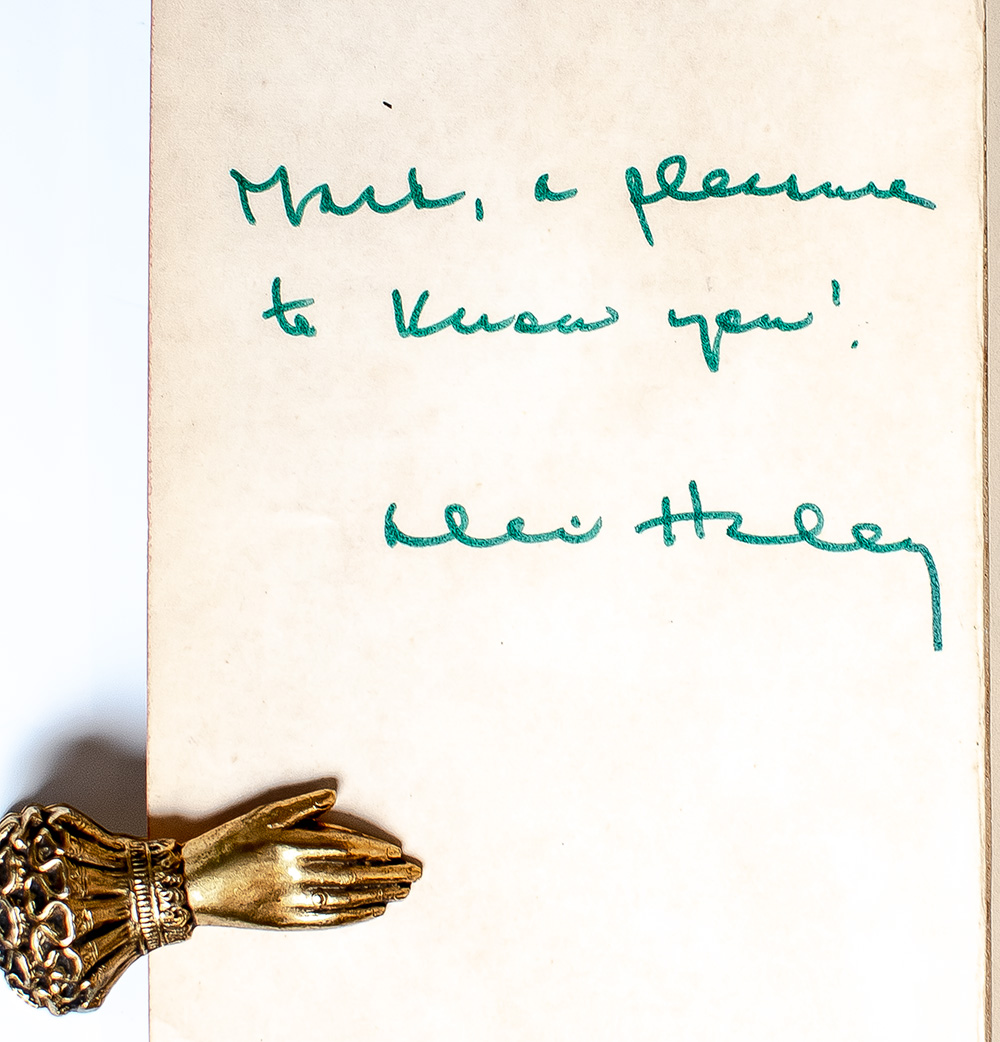 Mark, a pleasure
to know you!
Alex Haley